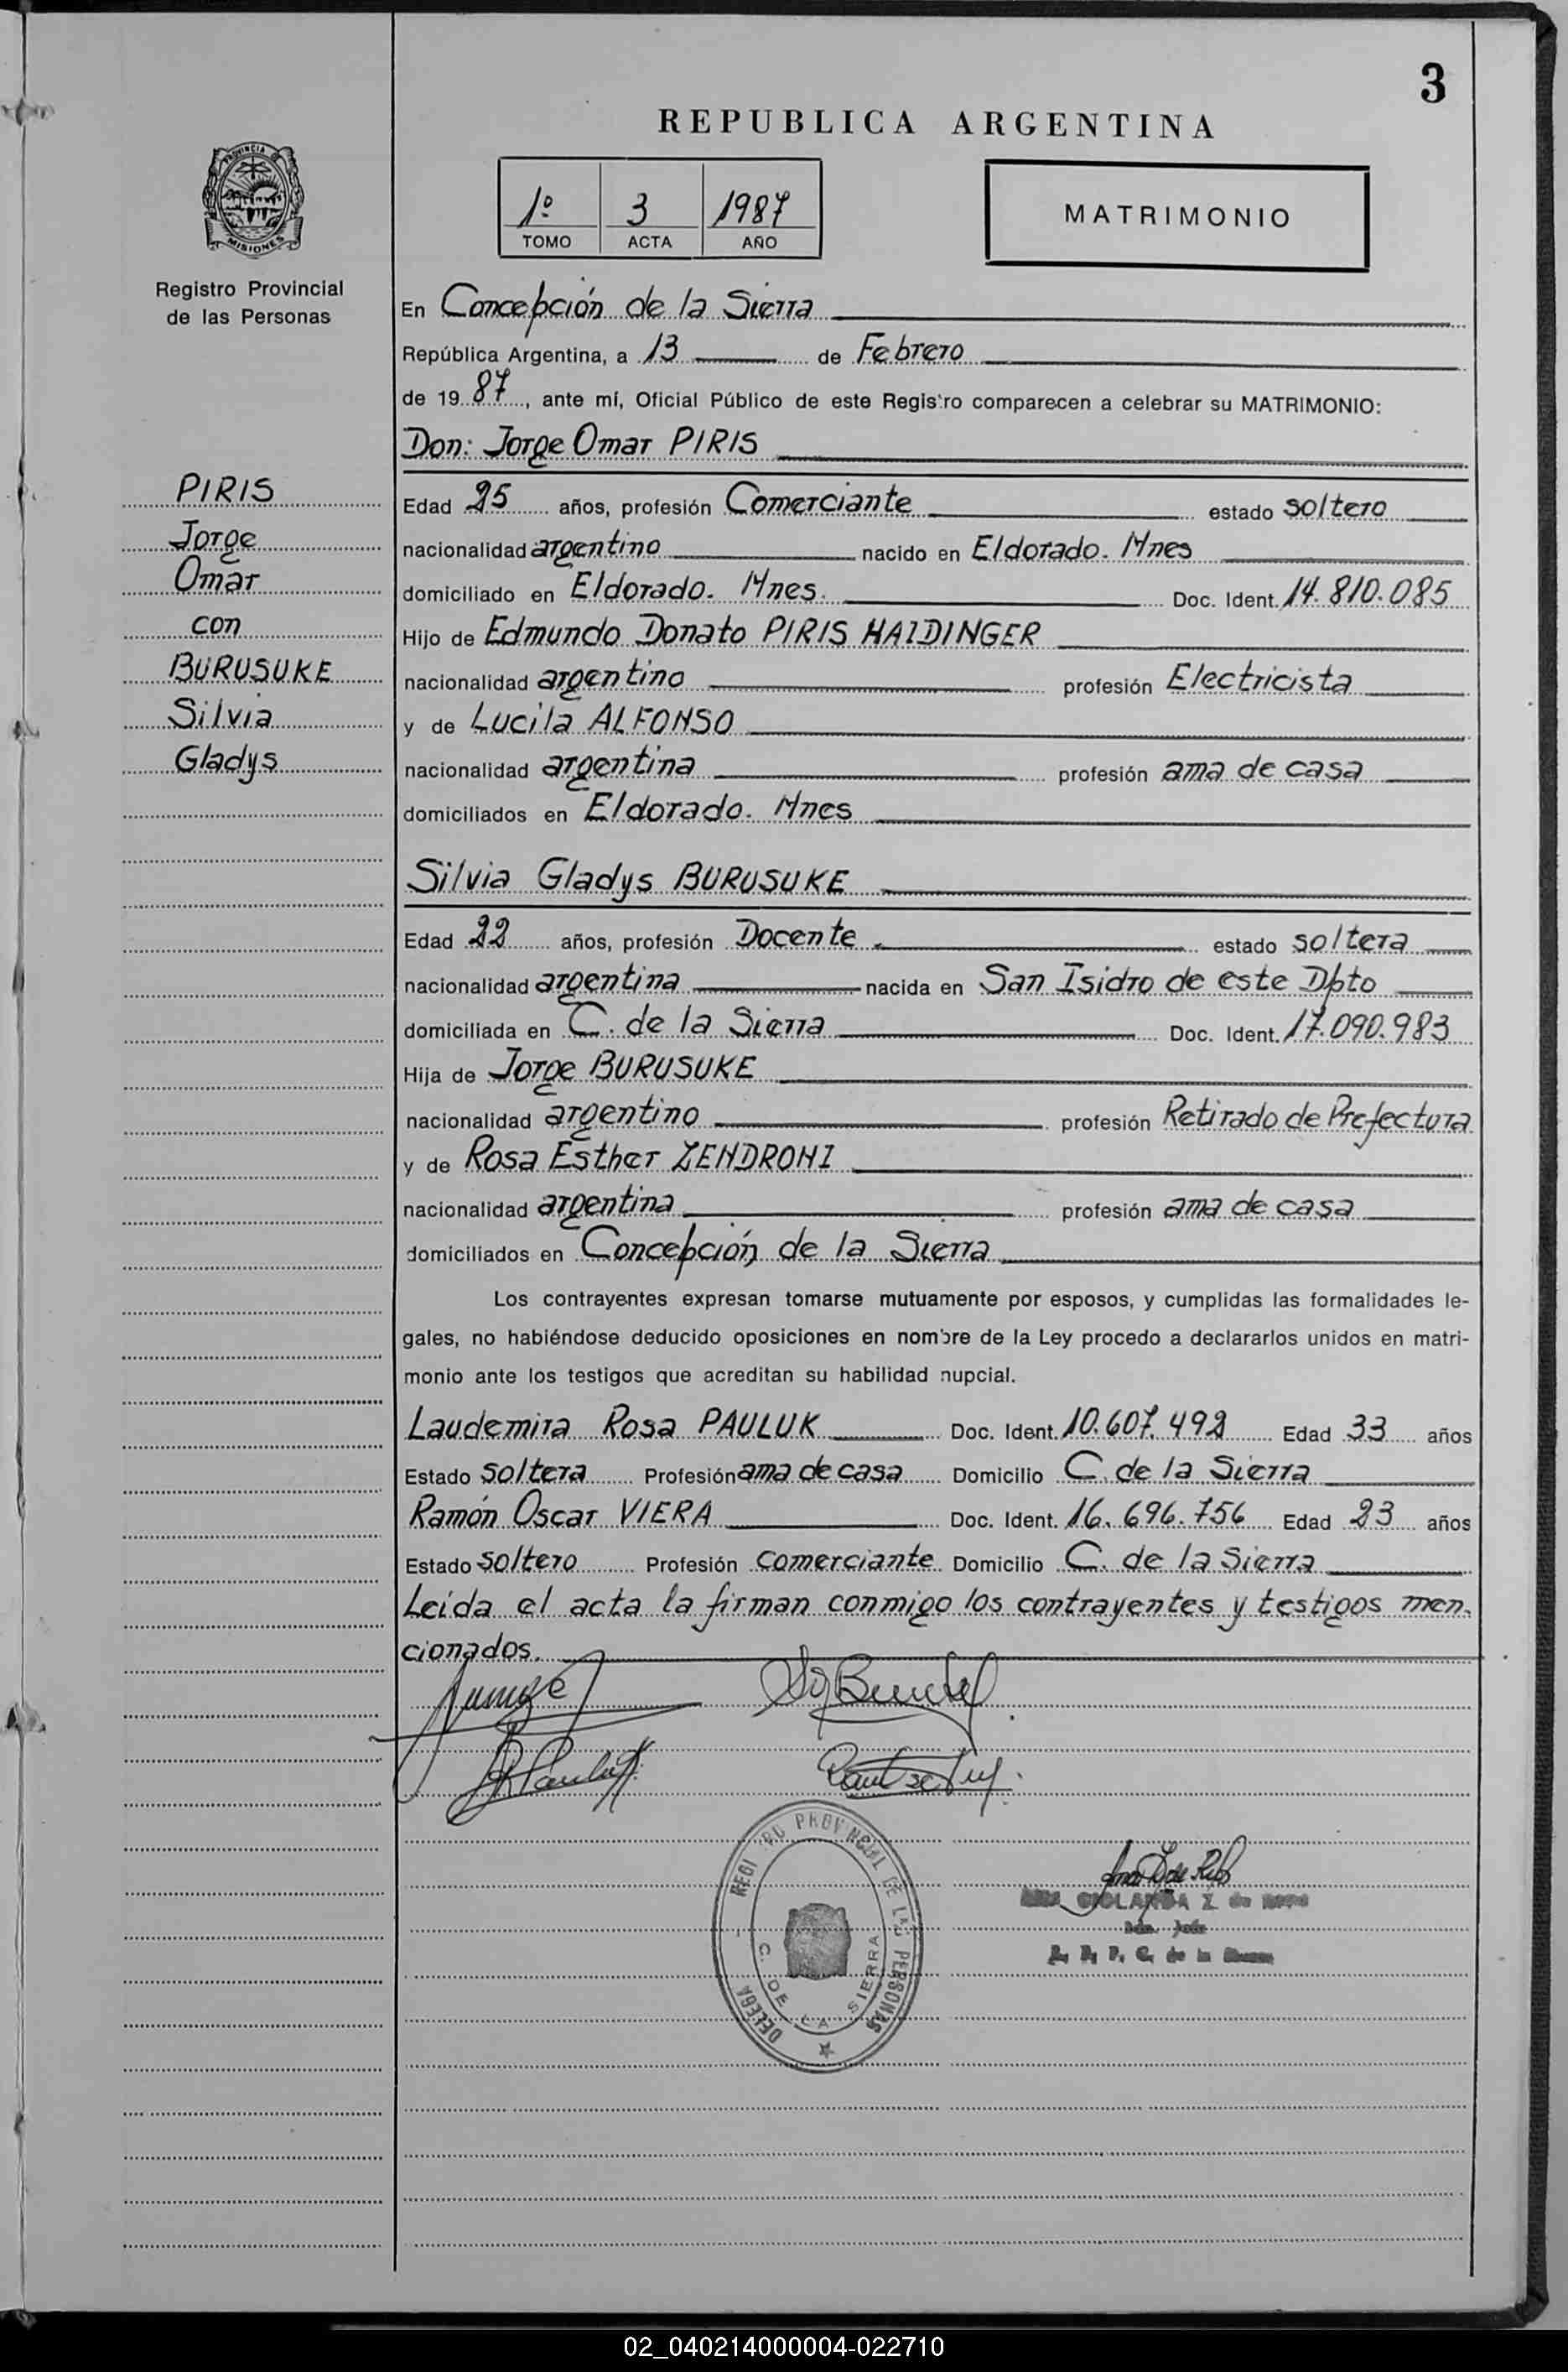 3
REPUBLICA ARGENTINA
PROVINCIA DE
MISIONES
1º 3 1987
TOMO ACTA AÑO
MATRIMONIO
Registro Provincial
de las Personas
En Concepción de la Sierra
República Argentina, a 13 de Febrero
de 1987, ante mí, Oficial Público de este Registro comparecen a celebrar su MATRIMONIO:
Don: Jorge Omar PIRIS
PIRIS
Jorge
Omar
con
BURUSUKE
Silvia
Gladys
Edad 25 años, profesión Comerciante estado soltero
nacionalidad argentino nacido en Eldorado. Mnes
domiciliado en Eldorado. Mnes. Doc. Ident. 14.810.085
Hijo de Edmundo Donato PIRIS HAIDINGER
nacionalidad argentino profesión Electricista
y de Lucila ALFONSO
nacionalidad argentina profesión ama de casa
domiciliados en Eldorado. Mnes
Silvia Gladys BURUSUKE
Edad 22 años, profesión Docente estado soltera
nacionalidad argentina nacida en San Isidro de este Dpto
domiciliada en C. de la Sierra Doc. Ident. 17.090.983
Hija de Jorge BURUSUKE
nacionalidad argentino profesión Retirado de Prefectura
y de Rosa Esther ZENDRONI
nacionalidad argentina profesión ama de casa
domiciliados en Concepción de la Sierra
Los contrayentes expresan tomarse mutuamente por esposos, y cumplidas las formalidades le-
gales, no habiéndose deducido oposiciones en nombre de la Ley procedo a declararlos unidos en matri-
monio ante los testigos que acreditan su habilidad nupcial.
Laudemira Rosa PAULUK Doc. Ident. 10.607.492 Edad 33 años
Estado soltera Profesión ama de casa Domicilio C. de la Sierra
Ramón Oscar VIERA Doc. Ident. 16.696.756 Edad 23 años
Estado soltero Profesión comerciante Domicilio C. de la Sierra
Leida el acta la firman conmigo los contrayentes y testigos men-
cionados.
REGISTRO PROVINCIAL DE LAS PERSONAS
DELEGA
C. DE LA SIERRA
02_040214000004-022710